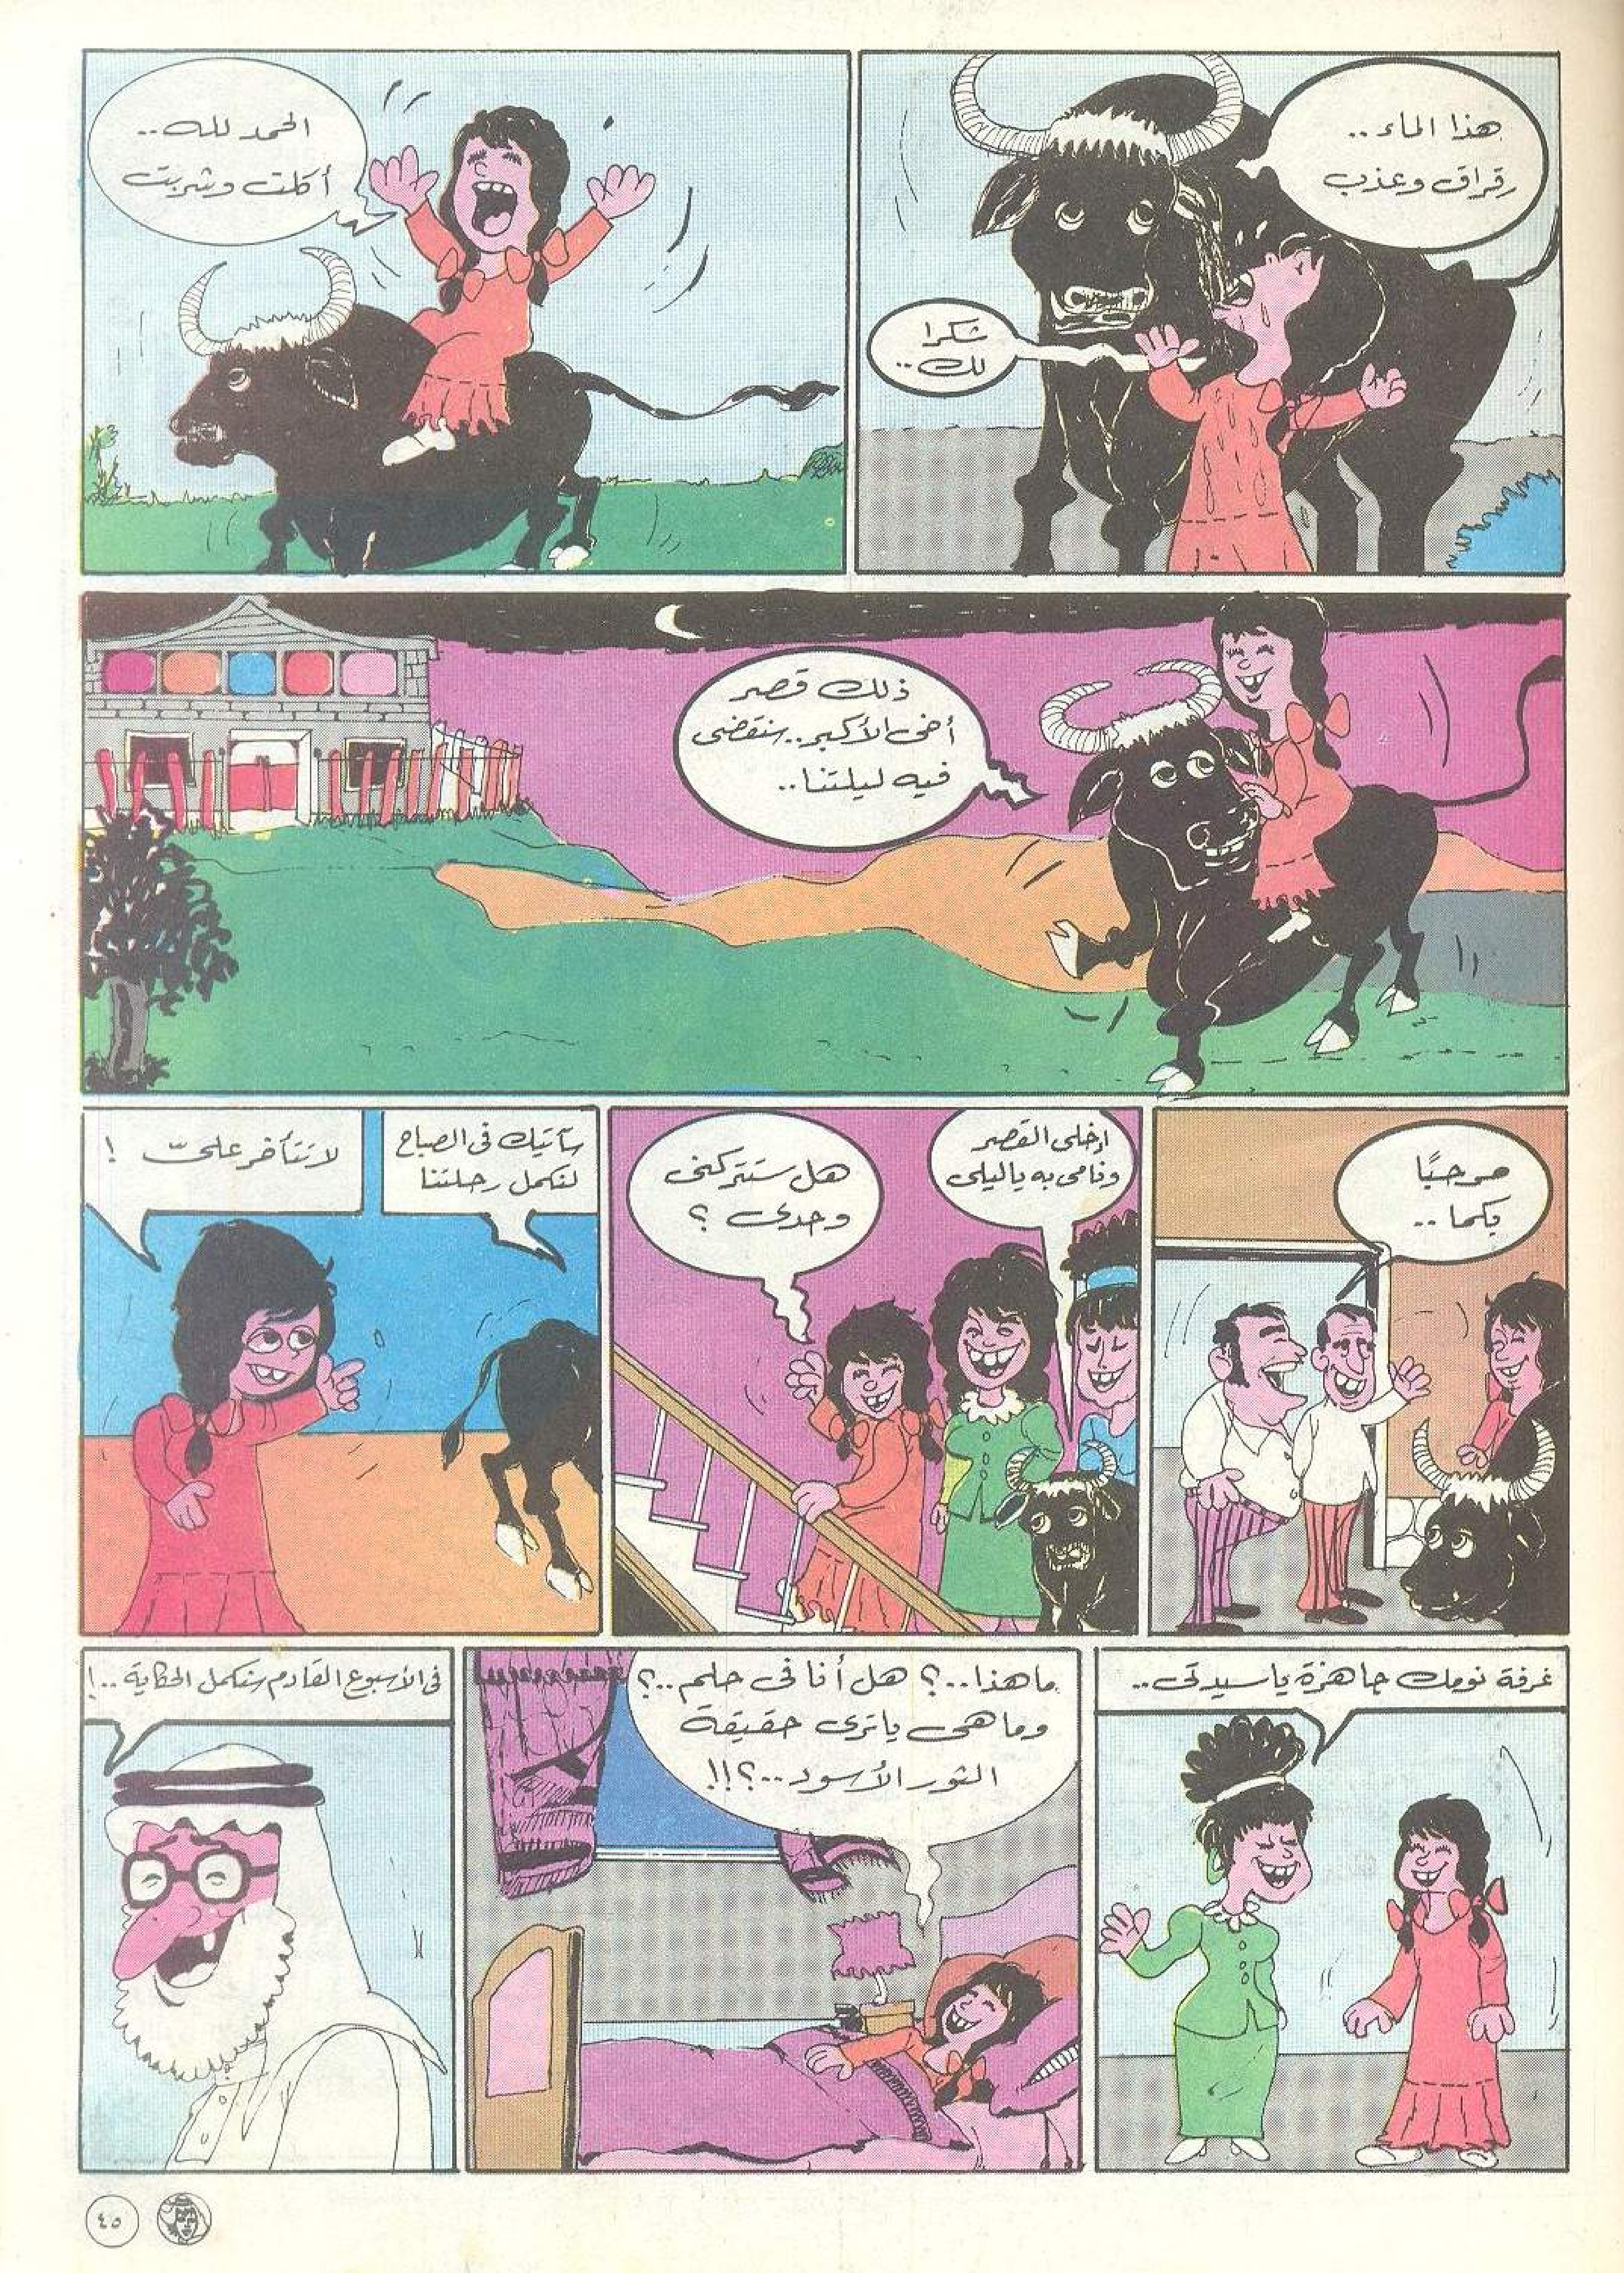 هذا الماء..
رقراق وعذب
شكرا
لك..
الحمد لله..
أكلت وشربت
ذلك قصر
أخى الأكبر.. سنقضى
فيه ليلتنا..
مرحبًا
بكما..
إدخلى القصر
ونامى به ياليلى
هل ستتركنى
وحدى ؟
سآتيك فى الصباح
لنكمل رحلتنا
لا تتأخر علىّ !
غرفة نومك جاهزة ياسيدتى..
ما هذا..؟ هل أنا فى حلم..؟
وما هى ياترى حقيقة
الثور الأسود..؟!!
فى الأسبوع القادم سنكمل الحكاية..!
٤٥